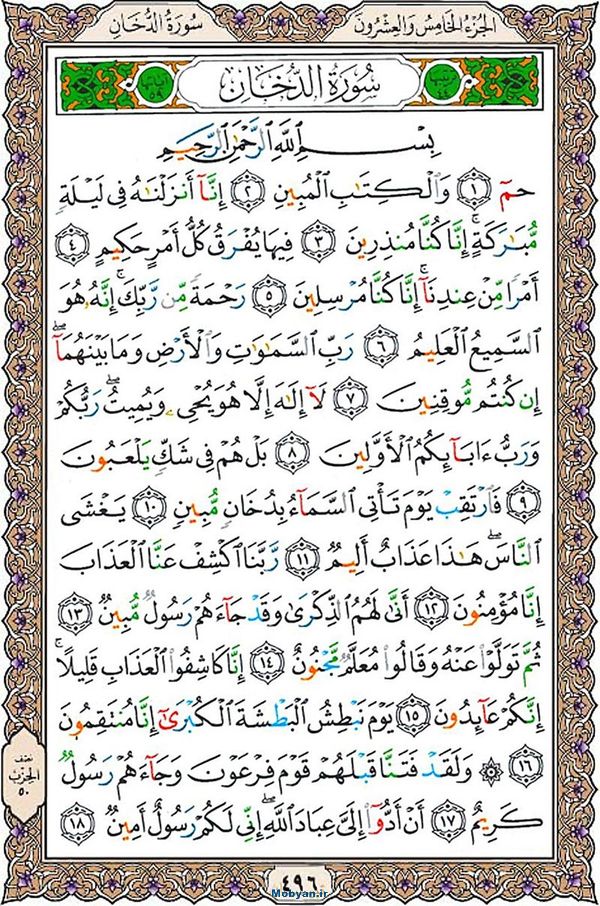 الجزء الخامس والعشرون
سورة الدخان
سُورَةُ الدُّخَانِ
بِسْمِ اللَّهِ الرَّحْمَٰنِ الرَّحِيمِ
حمٓ ١ وَالْكِتَابِ الْمُبِينِ ٢ إِنَّآ أَنزَلْنَاهُ فِى لَيْلَةٍ
مُّبَارَكَةٍ ۚ إِنَّا كُنَّا مُنذِرِينَ ٣ فِيهَا يُفْرَقُ كُلُّ أَمْرٍ حَكِيمٍ ٤
أَمْرًا مِّنْ عِندِنَآ ۚ إِنَّا كُنَّا مُرْسِلِينَ ٥ رَحْمَةً مِّن رَّبِّكَ ۚ إِنَّهُۥ هُوَ
السَّمِيعُ الْعَلِيمُ ٦ رَبِّ السَّمَٰوَٰتِ وَالْأَرْضِ وَمَا بَيْنَهُمَآ ۖ
إِن كُنتُم مُّوقِنِينَ ٧ لَآ إِلَٰهَ إِلَّا هُوَ يُحْىِۦ وَيُمِيتُ ۖ رَبُّكُمْ
وَرَبُّ ءَابَآئِكُمُ الْأَوَّلِينَ ٨ بَلْ هُمْ فِى شَكٍّ يَلْعَبُونَ
٩ فَارْتَقِبْ يَوْمَ تَأْتِى السَّمَآءُ بِدُخَانٍ مُّبِينٍ ١٠ يَغْشَى
النَّاسَ ۖ هَٰذَا عَذَابٌ أَلِيمٌ ١١ رَّبَّنَا اكْشِفْ عَنَّا الْعَذَابَ
إِنَّا مُؤْمِنُونَ ١٢ أَنَّىٰ لَهُمُ الذِّكْرَىٰ وَقَدْ جَآءَهُمْ رَسُولٌ مُّبِينٌ ١٣
ثُمَّ تَوَلَّوْا عَنْهُ وَقَالُوا مُعَلَّمٌ مَّجْنُونٌ ١٤ إِنَّا كَاشِفُوا الْعَذَابِ قَلِيلًا ۚ
إِنَّكُمْ عَآئِدُونَ ١٥ يَوْمَ نَبْطِشُ الْبَطْشَةَ الْكُبْرَىٰٓ إِنَّا مُنتَقِمُونَ
١٦ ۞ وَلَقَدْ فَتَنَّا قَبْلَهُمْ قَوْمَ فِرْعَوْنَ وَجَآءَهُمْ رَسُولٌ
كَرِيمٌ ١٧ أَنْ أَدُّوٓا إِلَىَّ عِبَادَ اللَّهِ ۖ إِنِّى لَكُمْ رَسُولٌ أَمِينٌ ١٨
نصف
الحزب
٥٠
٤٩٦
Mobyan.ir